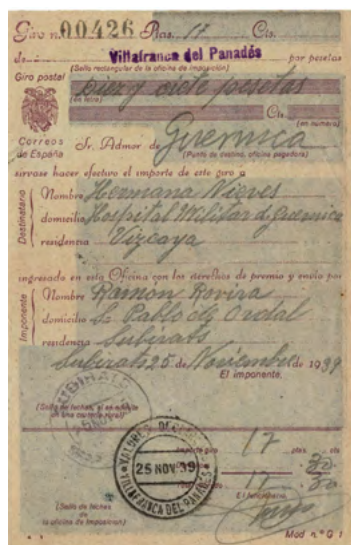 Giro n.º 00426 Ptas. 17 Cts.
de Villafranca del Panadés por pesetas
(Sello rectangular de la oficina de imposición)
Giro postal
Diez y siete pesetas
(en letra)
Cts.
(en número)
Correos de España
Sr. Admor de Guernica
(Punto de destino, oficina pagadora)
sírvase hacer efectivo el importe de este giro a
Destinatario
Nombre Hermana Nieves
domicilio Hospital Militar de Guernica
residencia Vizcaya
ingresado en esta Oficina con los derechos de premio y envío por
Imponente
Nombre Ramon Rovira
domicilio Sn Pablo de Ordal
residencia Subirats
Subirats 25 de Noviembre de 1939
El imponente,
(Sello de fechas, si se admite en una cartería rural)
VALORES DECLARADOS
25 NOV. 39
VILLAFRANCA DEL PANADÉS
Importe giro 17 ptas. cts.
30
17 30
El funcionario,
(Sello de fechas de la oficina de imposición)
Mod. n.º G 1